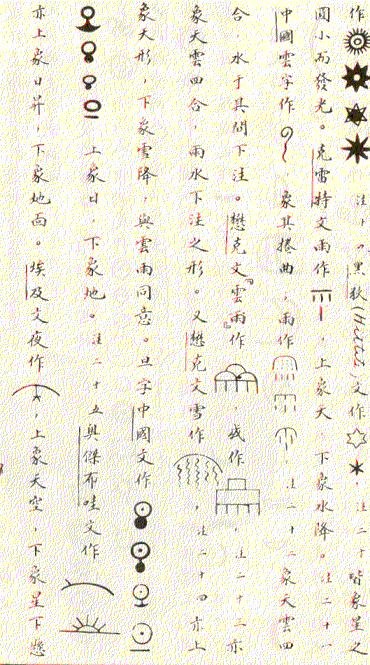 作 註十九黑狄(Hittite)文作 註二十皆象星之
圓小而發光。克雷特文雨作 ,上象天,下象水降。註二十一
中國雲字作 ,象其捲曲,雨作 ,註二十二象天雲四
合,水于其間下注。懋克文『雲雨』作 ,或作 ,註二十三亦
象天雲四合,雨水下注之形。又懋克文雪作 ,註二十四亦上
象天形,下象雪降,與雲雨同意。旦字中國文作
上象日,下象地。註二十五與傑布哇文作
亦上象日昇,下象地面。埃及文夜作 ,上象天空,下象星下懸